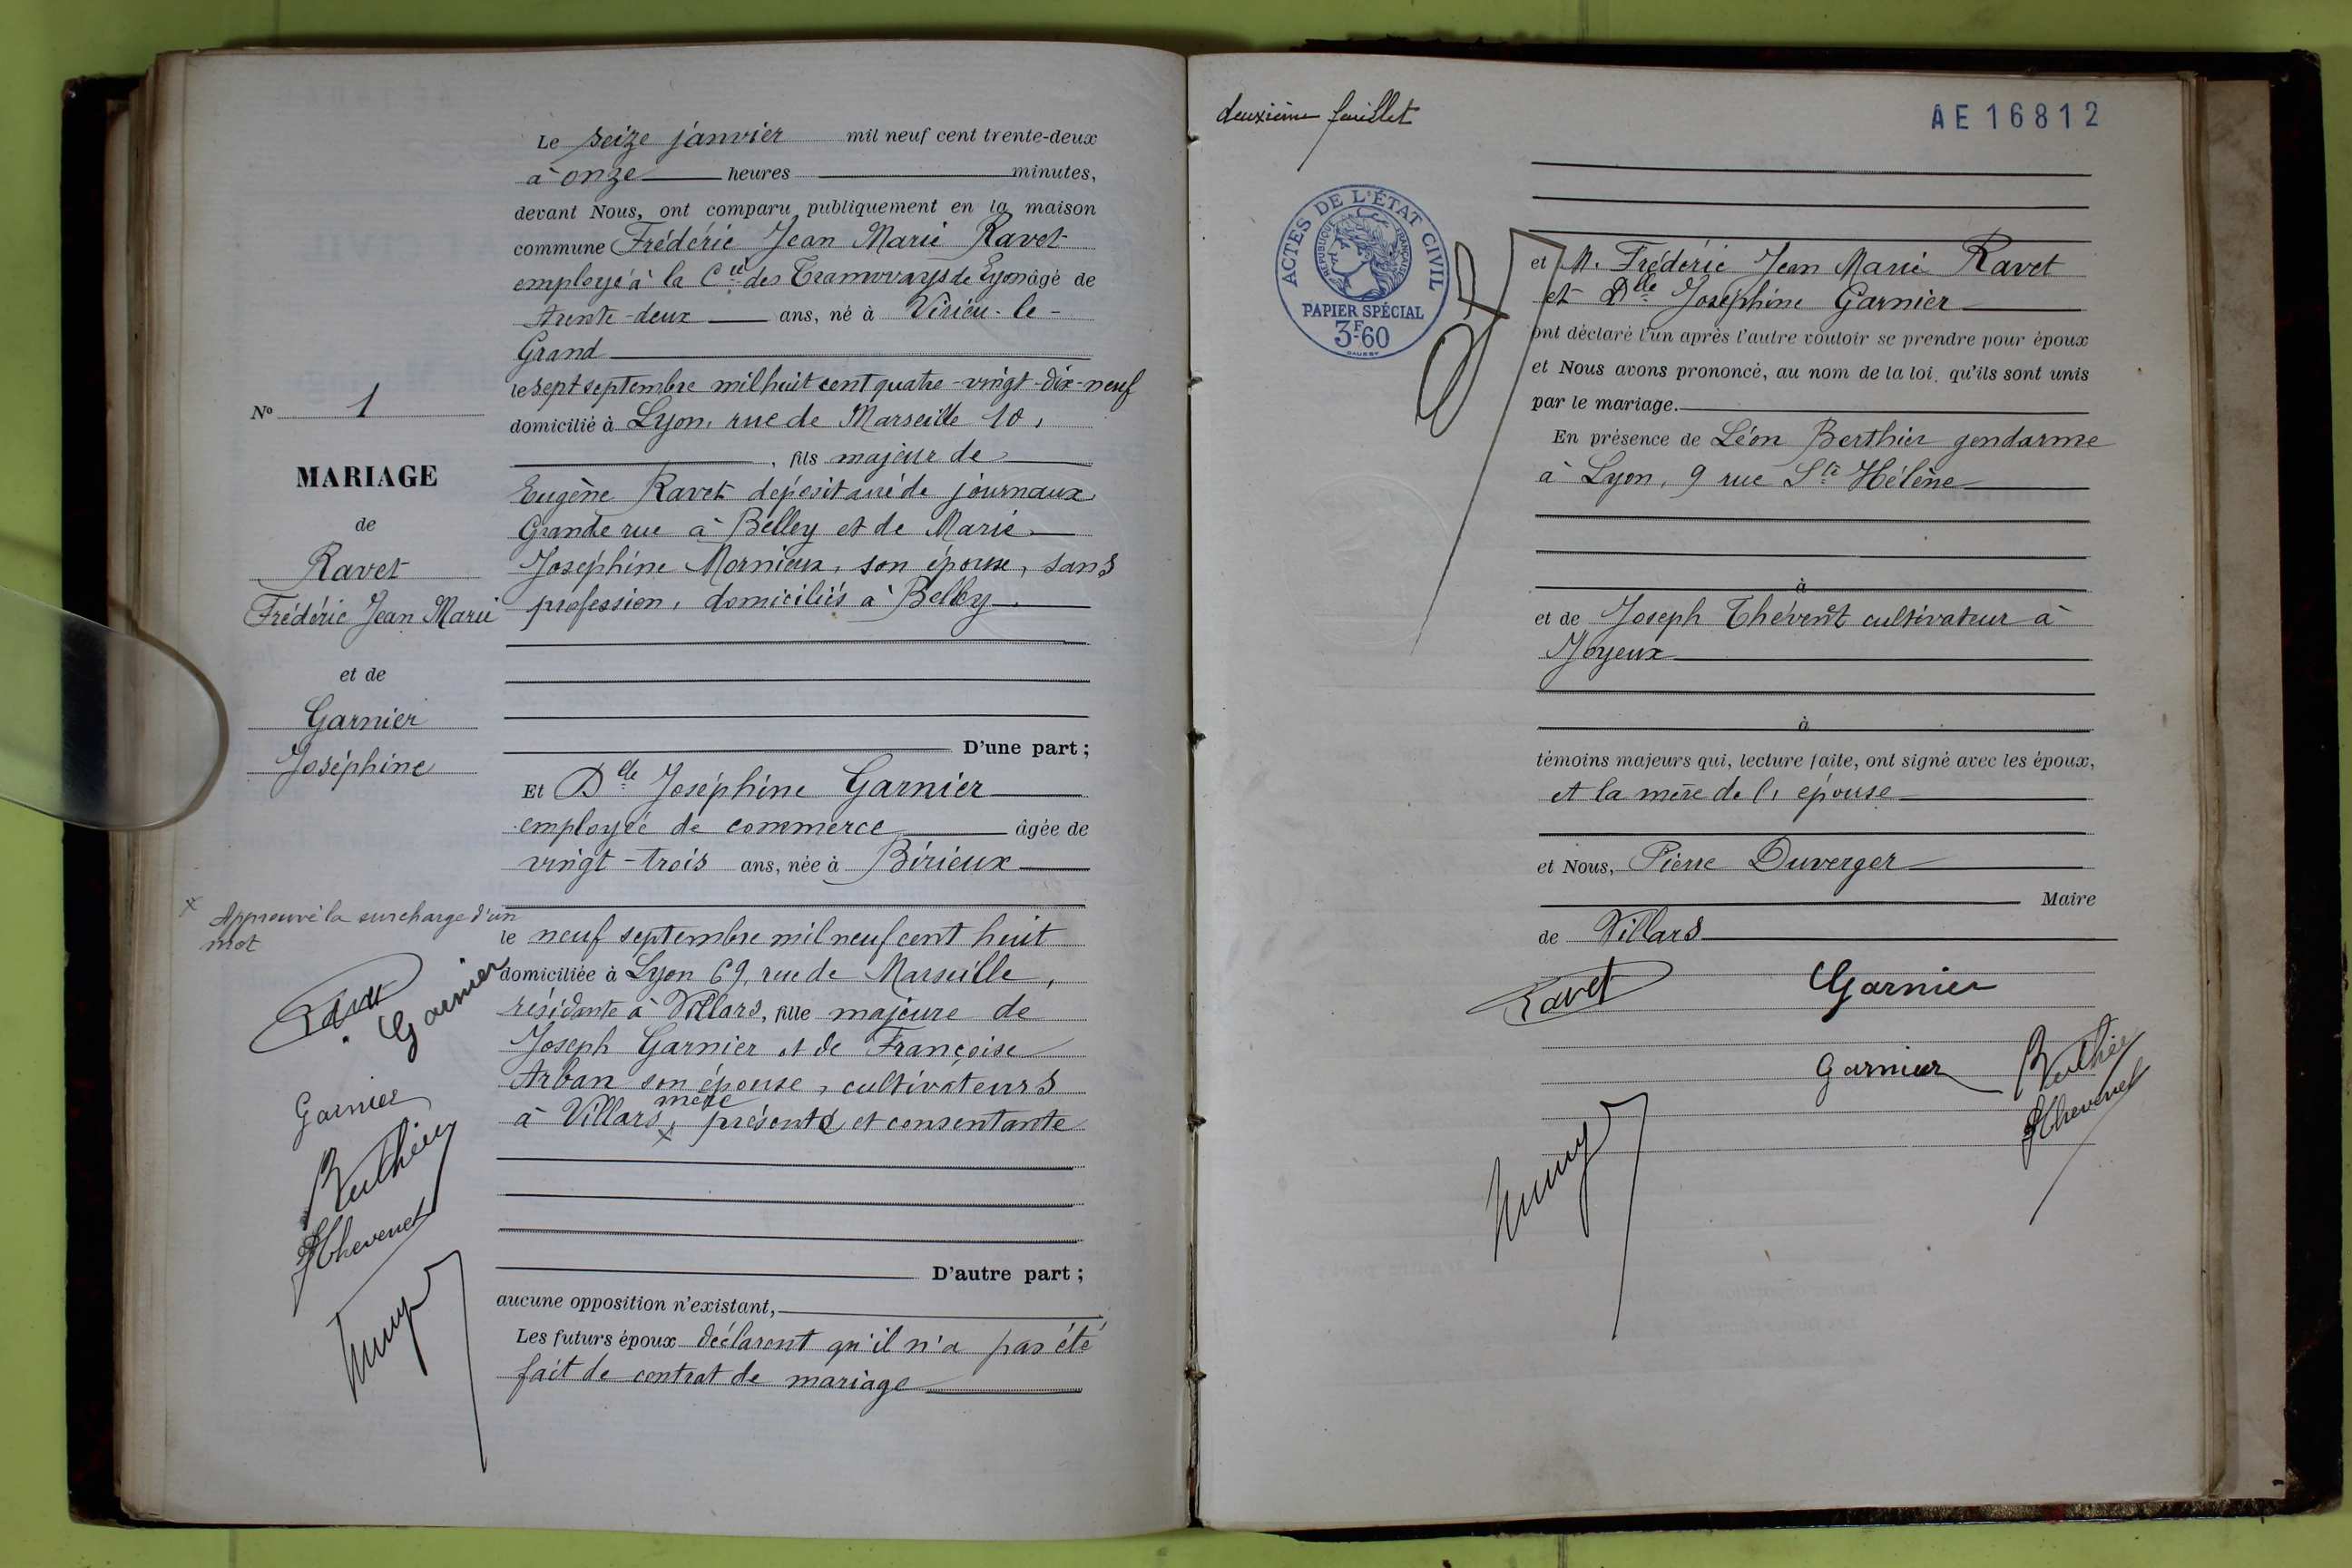 Le seize janvier mil neuf cent trente-deux
à onze heures minutes,
devant Nous, ont comparu publiquement en la maison
commune Frédéric Jean Marie Ravet
employé à la Cie des Tramways de Lyon âgé de
trente-deux ans, né à Virieu-le-
Grand
le sept septembre mil huit cent quatre-vingt-dix-neuf
domicilié à Lyon, rue de Marseille 10,
, fils majeur de
Eugène Ravet dépositaire de journaux
Grande rue à Belley et de Marie
Joséphine Mornieux, son épouse, sans
profession, domiciliés à Belley
D'une part ;
Et Dlle Joséphine Garnier
employée de commerce âgée de
vingt-trois ans, née à Birieux
le neuf septembre mil neuf cent huit
domiciliée à Lyon 69, rue de Marseille,
résidante à Villars, fille majeure de
Joseph Garnier et de Françoise
Arban son épouse, cultivateurs
mère
à Villars, x présente et consentante
D'autre part ;
aucune opposition n'existant,
Les futurs époux déclarent qu'il n'a pas été
fait de contrat de mariage
No 1
MARIAGE
de
Ravet
Frédéric Jean Marie
et de
Garnier
Joséphine
x Approuvé la surcharge d'un
mot
Ravet
Garnier
Garnier
Berthier
Thevenet
deuxième feuillet
AE16812
ACTES DE L'ÉTAT CIVIL
RÉPUBLIQUE FRANÇAISE
PAPIER SPÉCIAL
3F60
et M. Frédéric Jean Marie Ravet
et Dlle Joséphine Garnier
ont déclaré l'un après l'autre vouloir se prendre pour époux
et Nous avons prononcé, au nom de la loi, qu'ils sont unis
par le mariage.
En présence de Léon Berthier gendarme
à Lyon, 9 rue Ste Hélène
à
et de Joseph Thévenet cultivateur à
Joyeux
à
témoins majeurs qui, lecture faite, ont signé avec les époux,
et la mère de l'épouse
et Nous, Pierre Duverger
Maire
de Villars
Ravet
Garnier
Garnier
Berthier
Thevenet